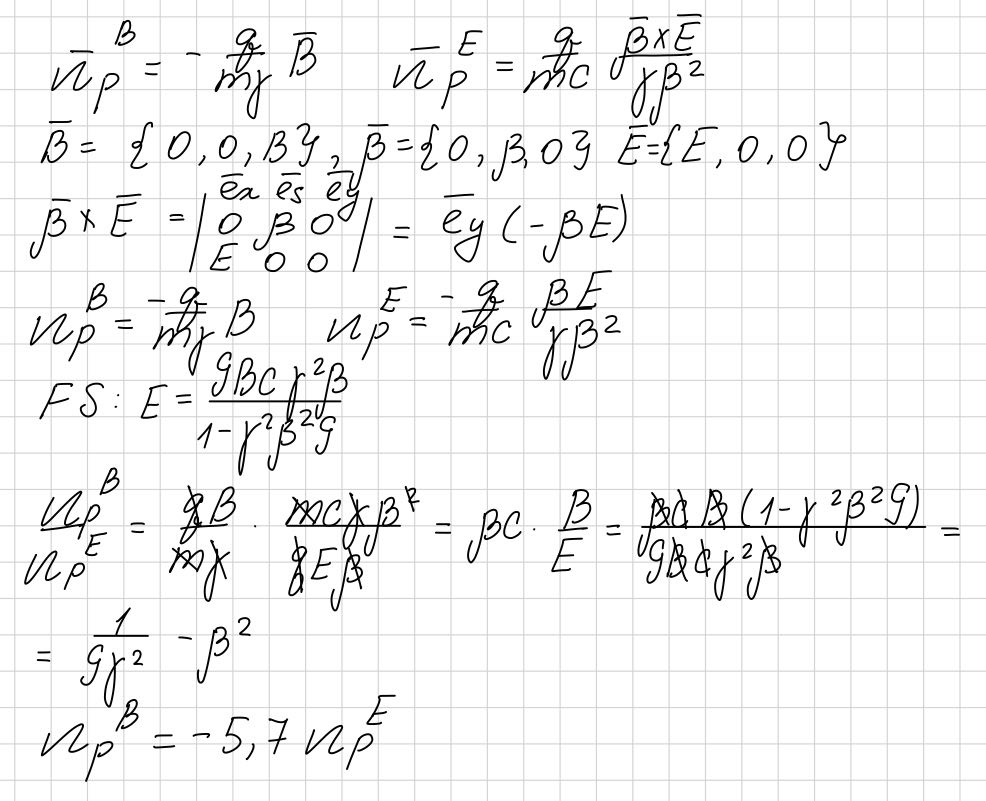 n̄ₚᴮ = - q/(mγ) B̄   n̄ₚᴱ = q/(mc) (β̄×Ē)/(γβ²)
B̄ = {0, 0, B}, β̄ = {0, β, 0} Ē = {E, 0, 0}
β̄ × Ē = | ēx ēs ēy ; 0 β 0 ; E 0 0 | = ēy (-βE)
nₚᴮ = -q/(mγ) B   nₚᴱ = -q/(mc) βE/(γβ²)
FS: E = GBcγ²β/(1-γ²β²G)
nₚᴮ/nₚᴱ = qB/(mγ) · mcγβ²/(qEβ) = βc · B/E = βcB(1-γ²β²G)/(GBcγ²β) =
= 1/(Gγ²) - β²
nₚᴮ = -5,7 nₚᴱ